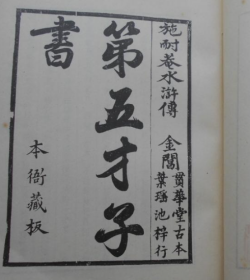 施耐菴水滸傳
金閶
貫華堂古本
葉瑤池梓行
第五才子
書
本衙藏板